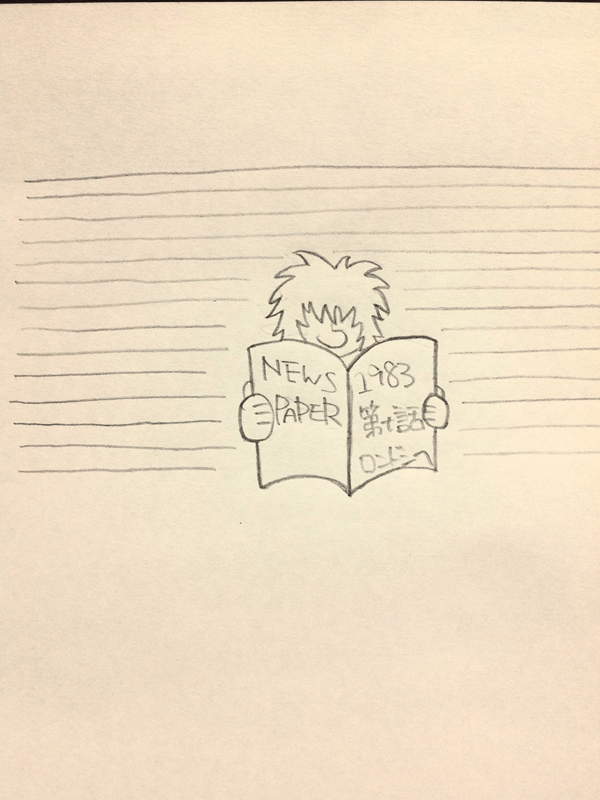 NEWS
PAPER
1983
第十話
ロンドンへ